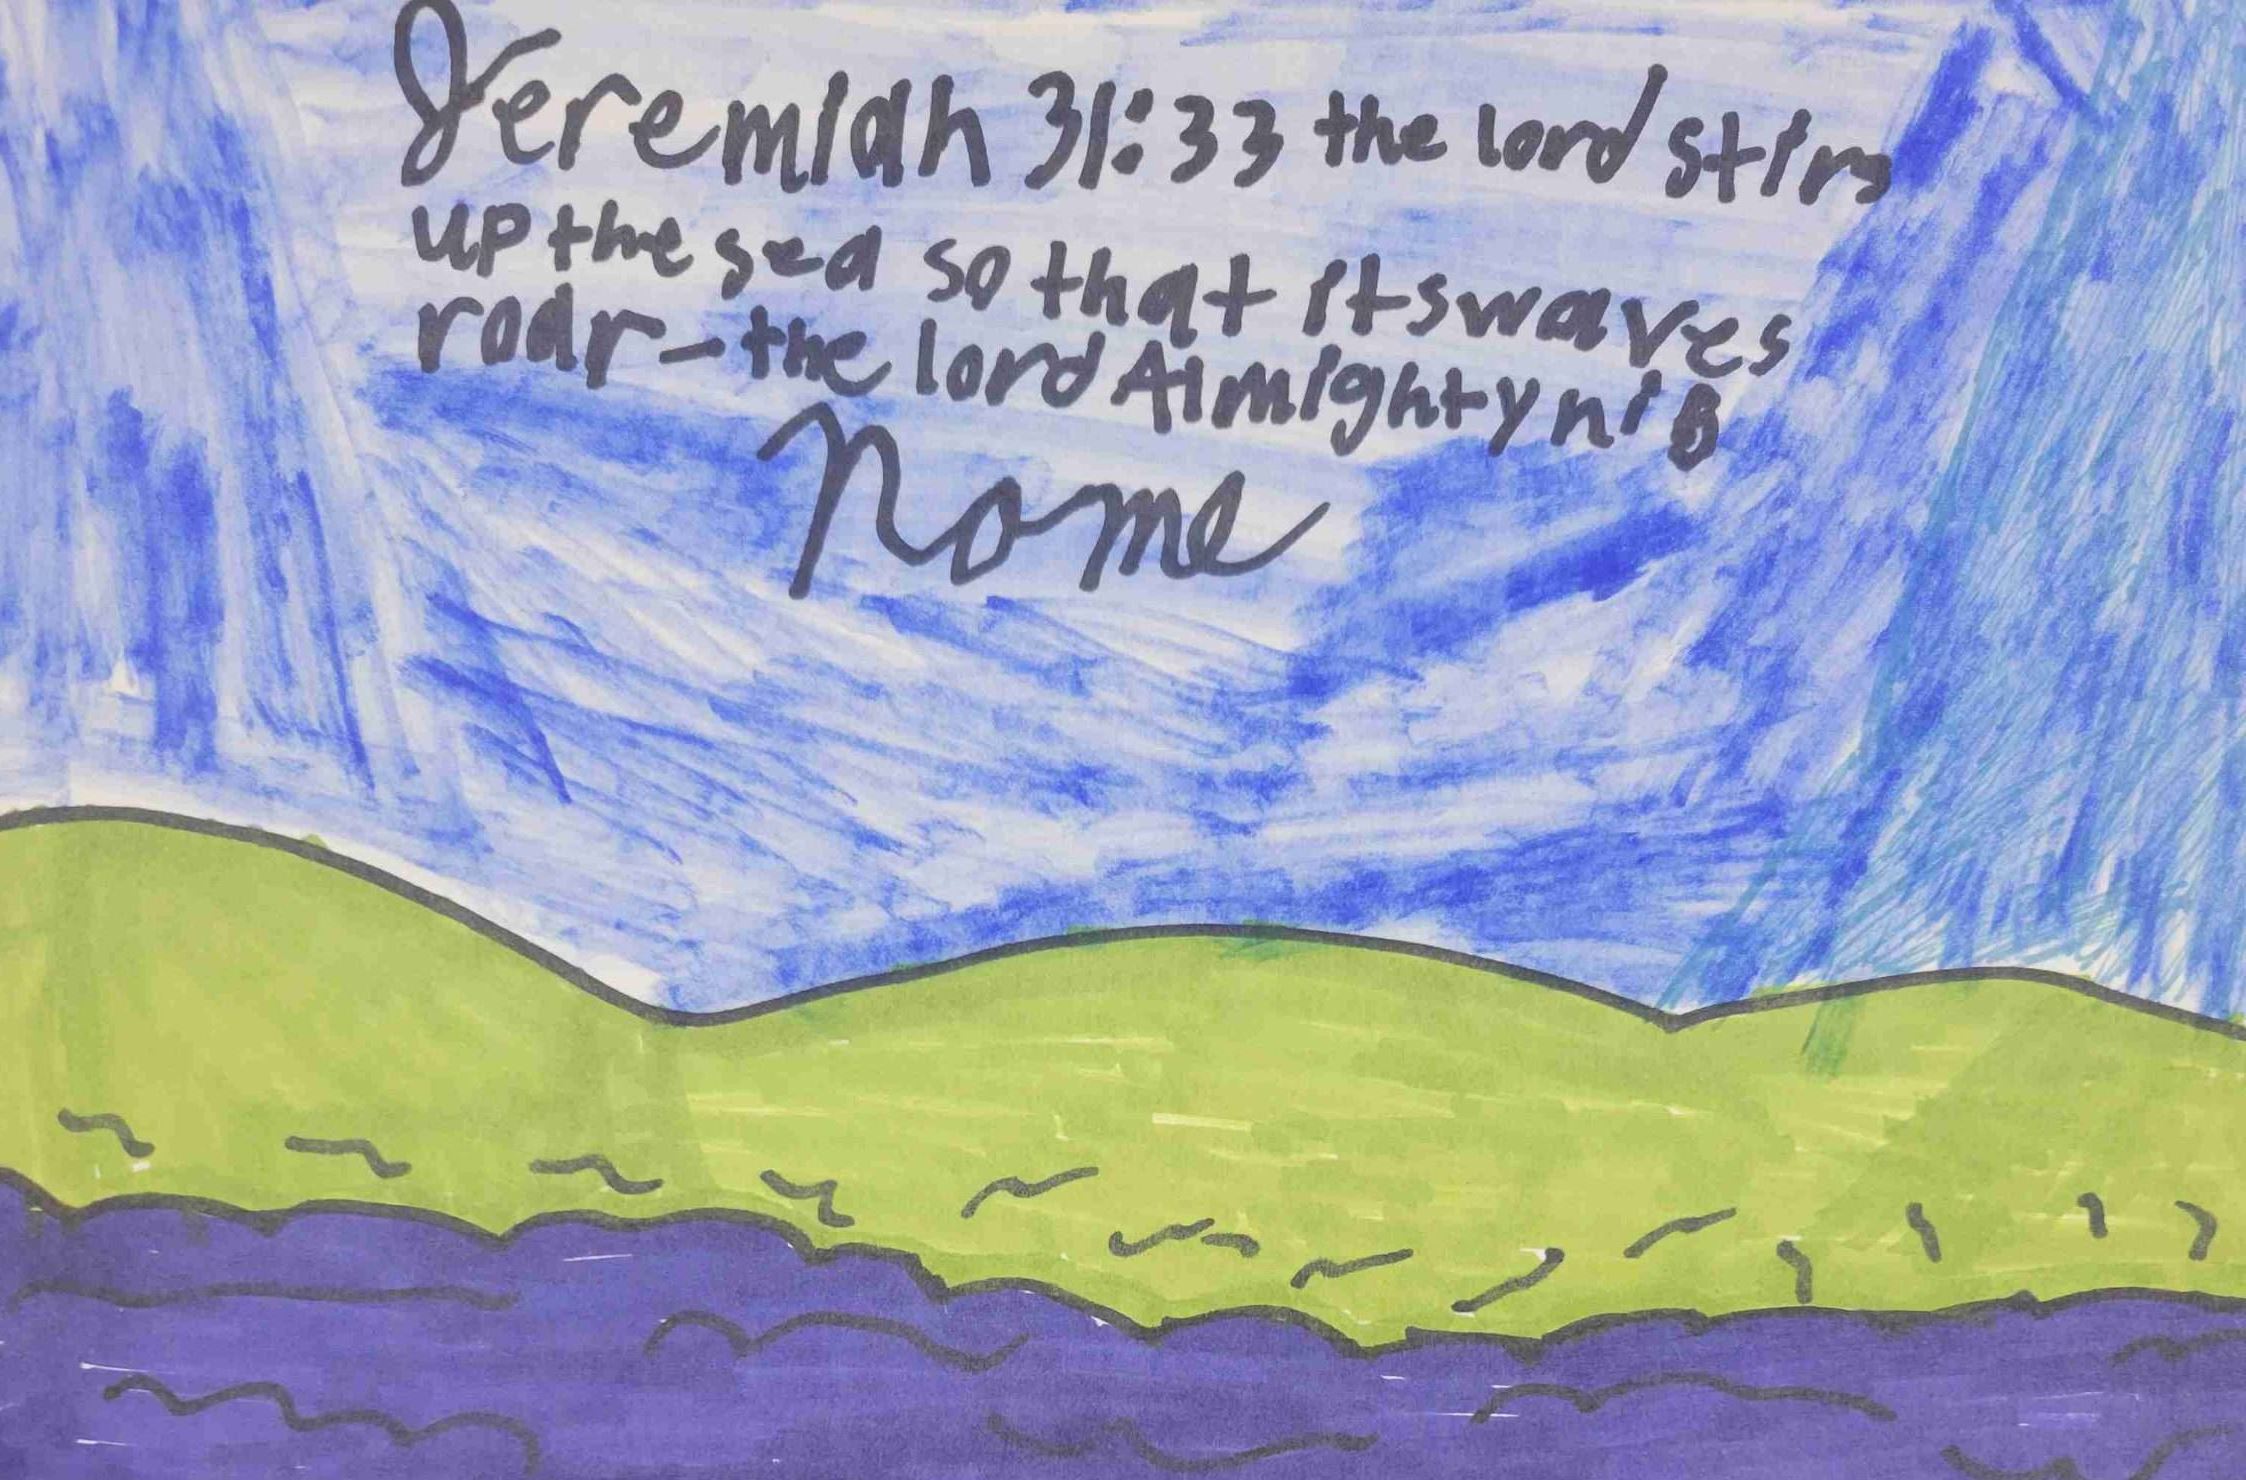 Jeremiah 31:33 the lord stirs
up the sea so that itswaves
roar-the lord Almighty nis
Name